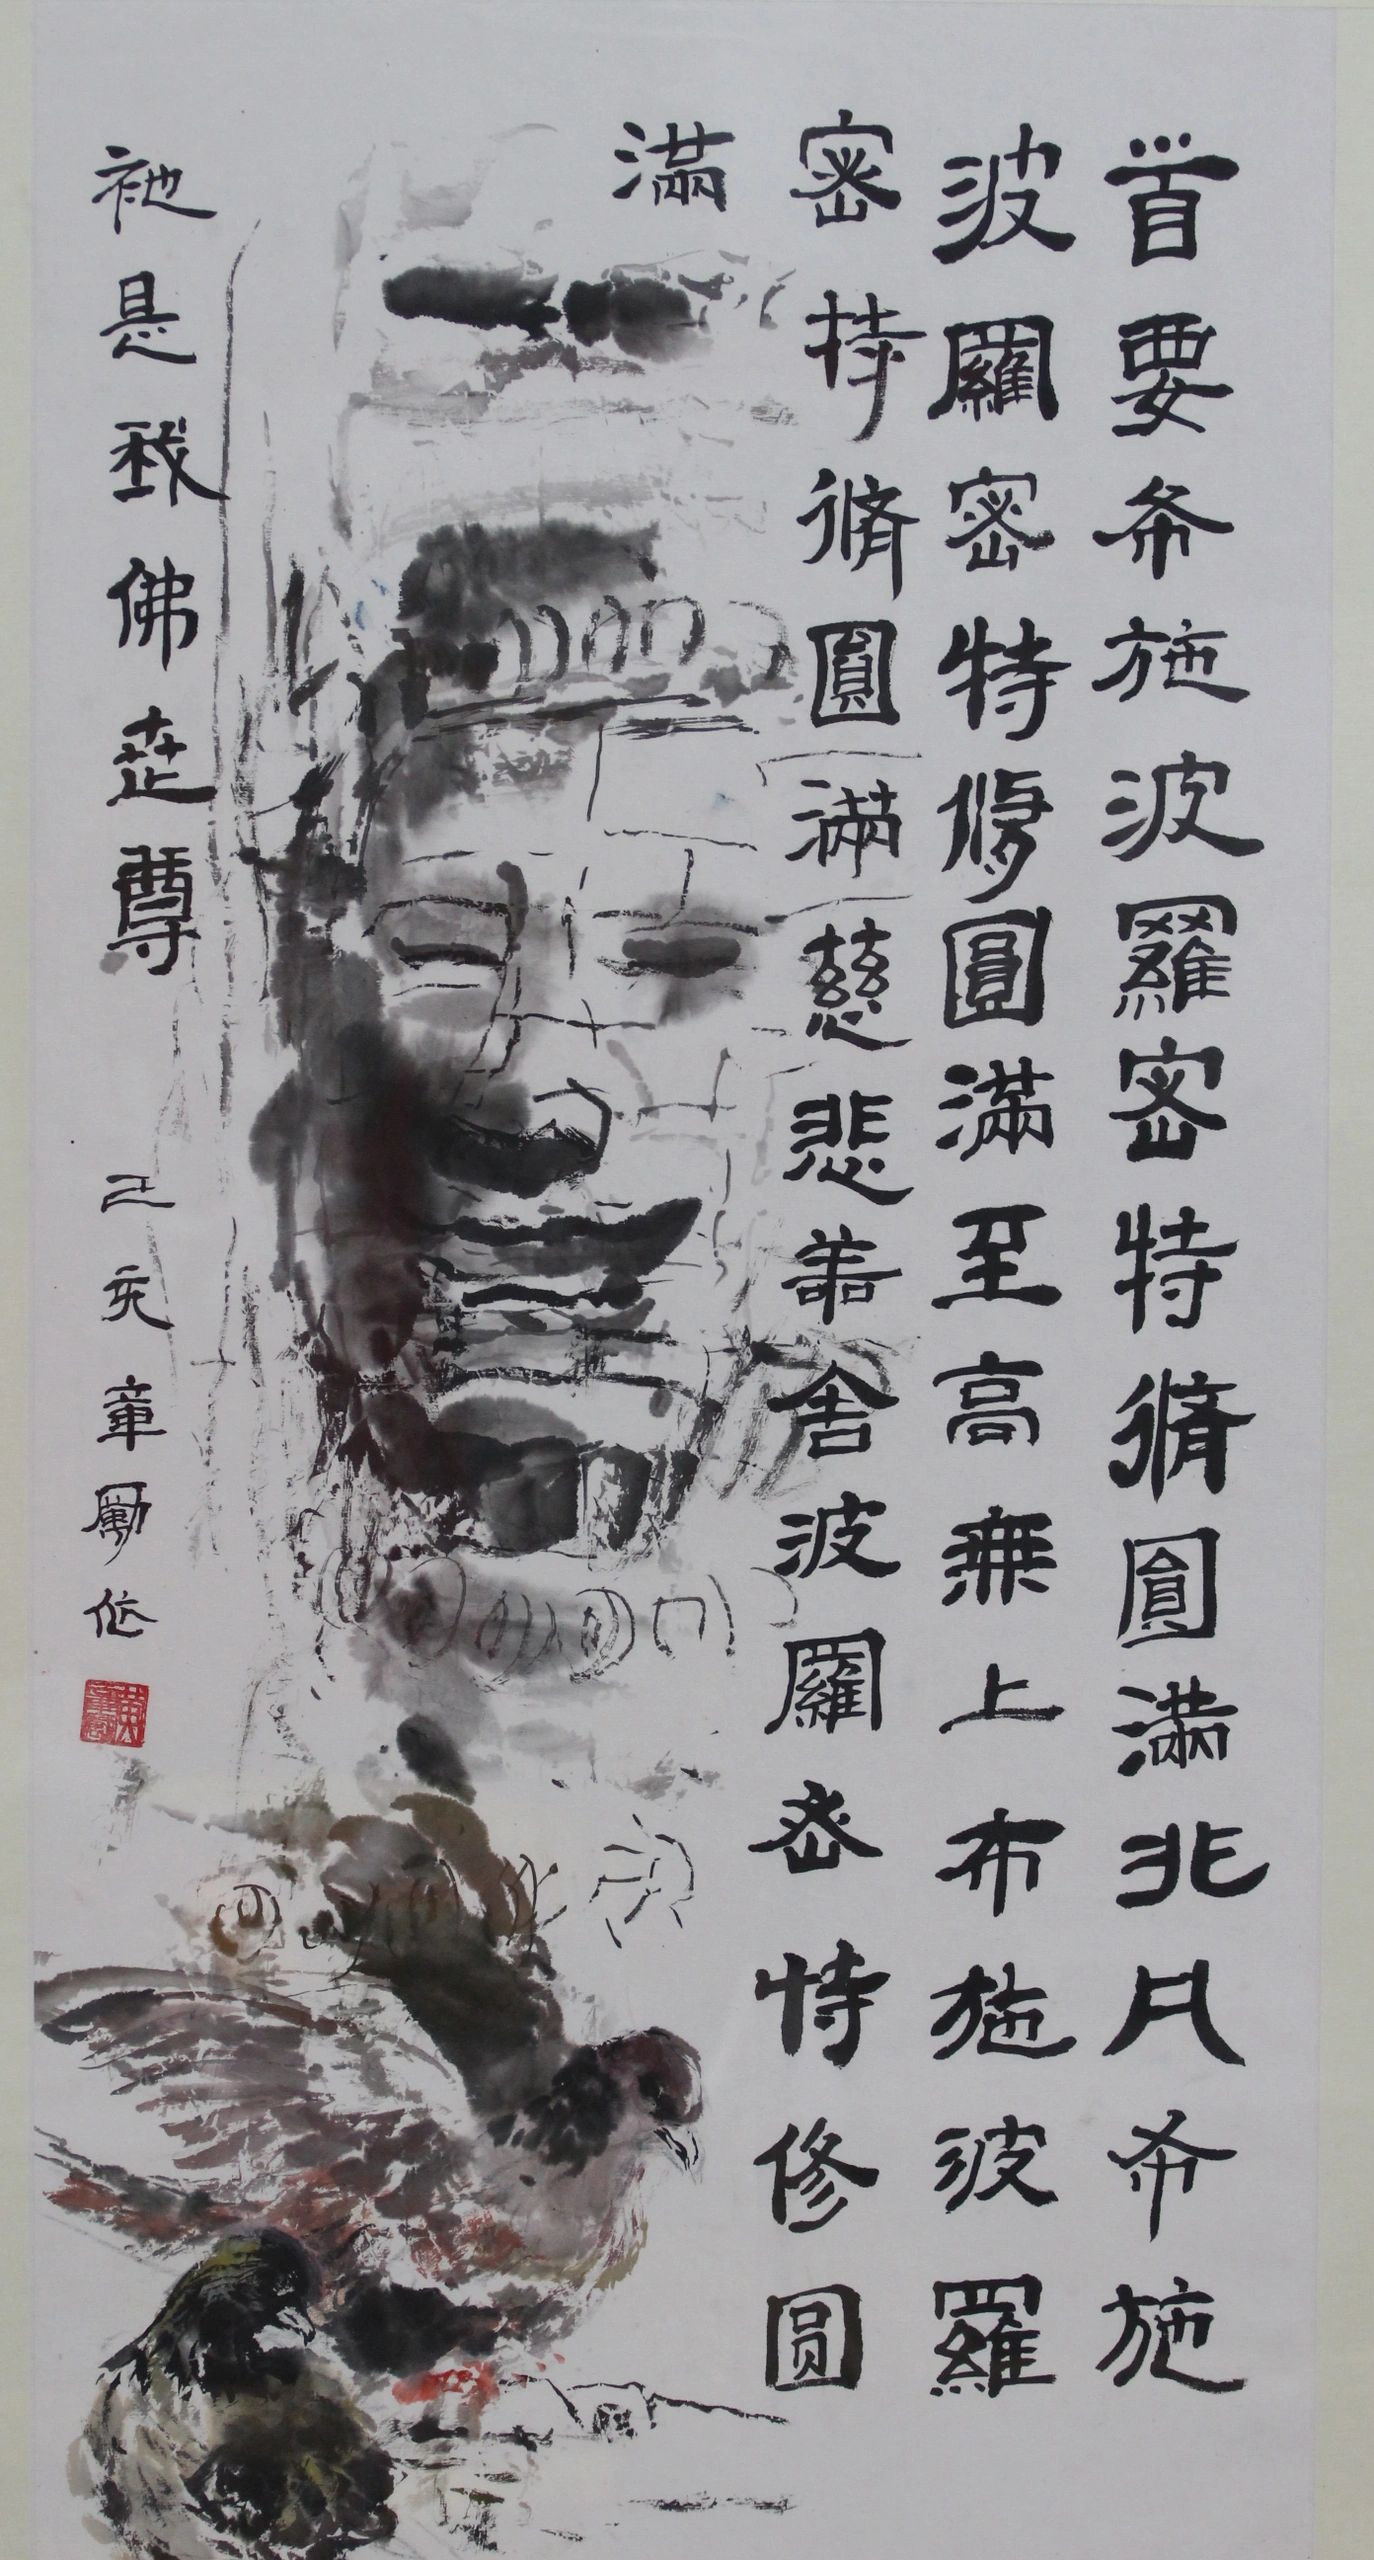 首要希施波羅密特脩圓滿非凡希施
波羅密特修圓滿至高無上布施波羅
密持脩圓滿慈悲善舍波羅密恃修圆
滿
祂是我佛世尊 己亥章勵作